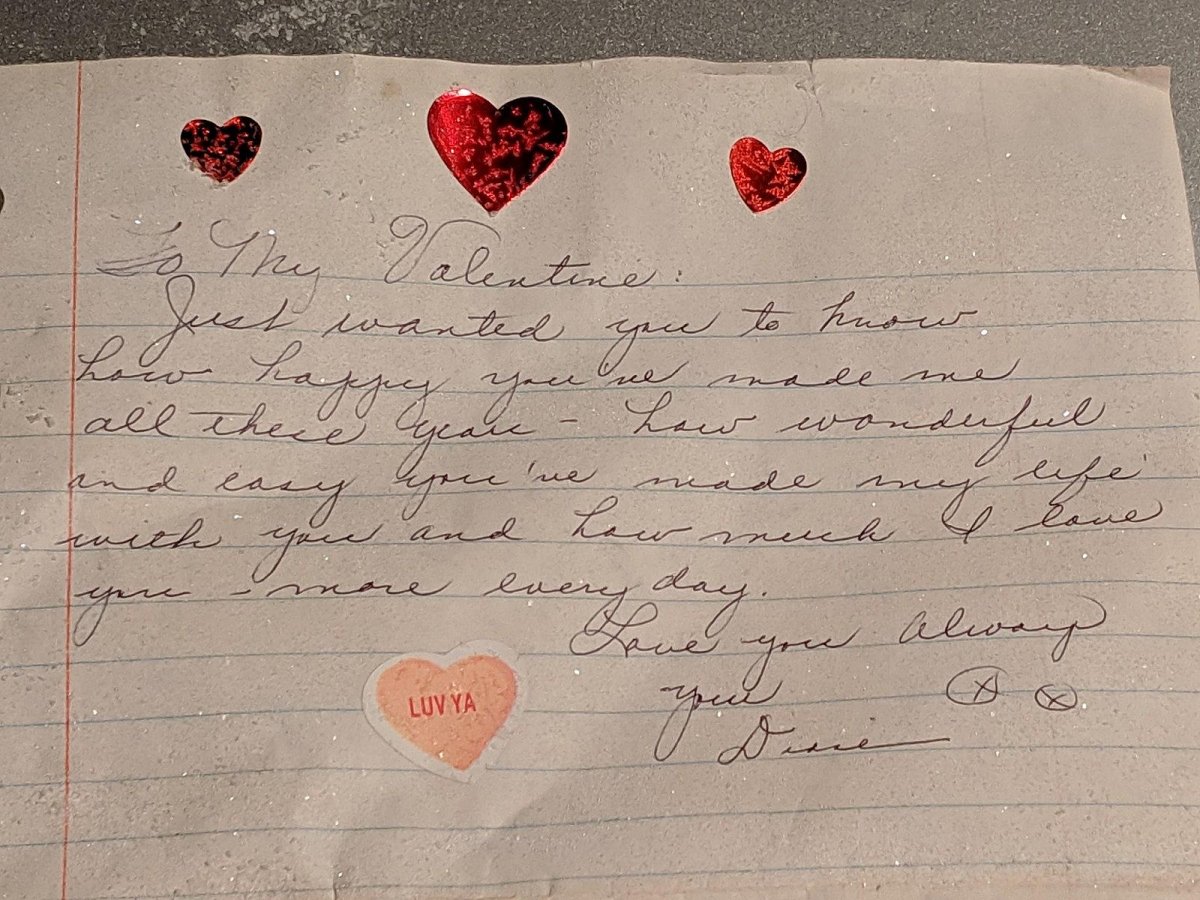 To My Valentine:
Just wanted you to know
how happy you've made me
all these years - how wonderful
and easy you've made my life
with you and how much I love
you - more every day.
Love you Always
Your
LUV YA
Diane